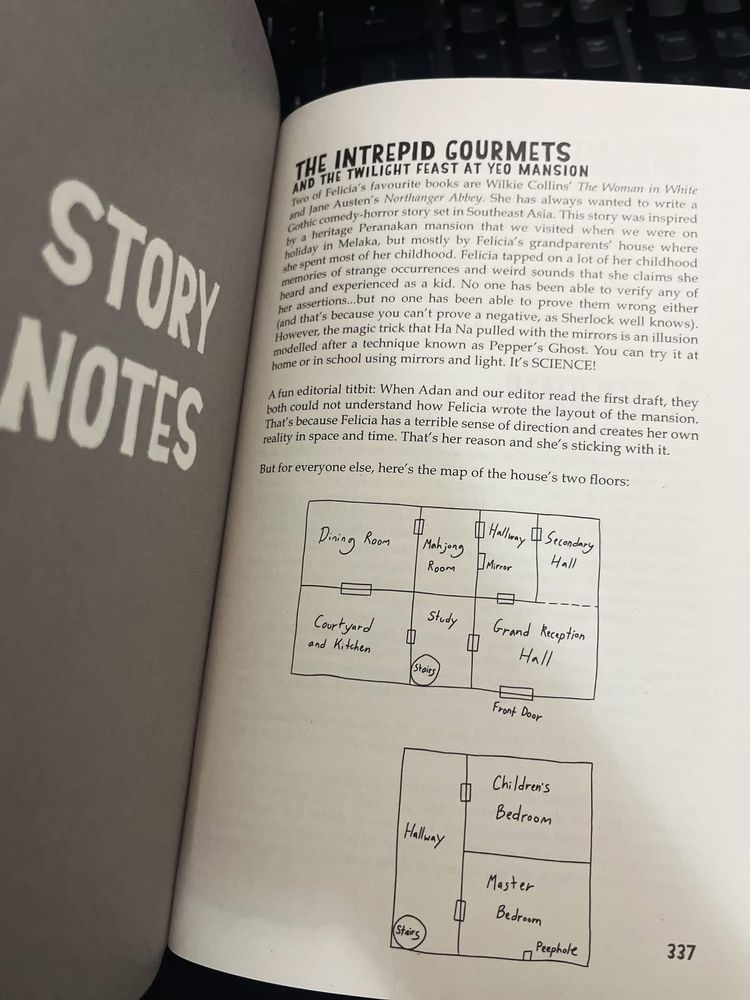 STORY
NOTES
THE INTREPID GOURMETS
AND THE TWILIGHT FEAST AT YEO MANSION
Two of Felicia's favourite books are Wilkie Collins' The Woman in White
and Jane Austen's Northanger Abbey. She has always wanted to write a
Gothic comedy-horror story set in Southeast Asia. This story was inspired
by a heritage Peranakan mansion that we visited when we were on
holiday in Melaka, but mostly by Felicia's grandparents' house where
she spent most of her childhood. Felicia tapped on a lot of her childhood
memories of strange occurrences and weird sounds that she claims she
heard and experienced as a kid. No one has been able to verify any of
her assertions...but no one has been able to prove them wrong either
(and that's because you can't prove a negative, as Sherlock well knows).
However, the magic trick that Ha Na pulled with the mirrors is an illusion
modelled after a technique known as Pepper's Ghost. You can try it at
home or in school using mirrors and light. It's SCIENCE!
A fun editorial titbit: When Adan and our editor read the first draft, they
both could not understand how Felicia wrote the layout of the mansion.
That's because Felicia has a terrible sense of direction and creates her own
reality in space and time. That's her reason and she's sticking with it.
But for everyone else, here's the map of the house's two floors:
Dining Room
Mahjong
Room
Hallway
Mirror
Secondary
Hall
Courtyard
and Kitchen
Study
Stairs
Grand Reception
Hall
Front Door
Hallway
Children's
Bedroom
Master
Bedroom
Stairs
Peephole
337